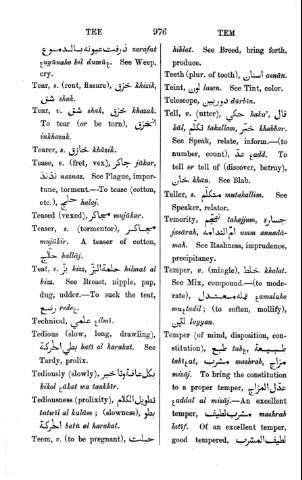 TEE 976 TEM
ذرفت عيونه بالدموع zarafat
ȝuyūnaho bil dumūȝ. See Weep,
cry.
Tear, s. (rent, fissure), خزق khizik,
شق shak.
Tear, v. شق shak, خزق khazak.
To tear (or be torn), انخزق
inkhazak.
Tearer, s. خازق khāzik.
Tease, v. (fret, vex), جاكر jākar,
نذنذ naznaz. See Plague, impor-
tune, torment.—To tease (cotton,
etc.), حلج halaj.
Teased (vexed), مجاكر mujākar.
Teaser, s. (tormentor), مجاكر
mujākir. A teaser of cotton,
حلاج hallāj.
Teat, s. بز bizz, حلمة البز hilmat al
bizz. See Breast, nipple, pap,
dug, udder.—To suck the teat,
رضع redeȝ.
Technical, علمي ȝilmī.
Tedious (slow, long, drawling),
بطي الحركة batī al harakat. See
Tardy, prolix.
Tediously (slowly), بكل عاقة وتاخير
bikol ȝākat wa taakhīr.
Tediousness (prolixity), تطويل الكلام
tatwīl al kalām; (slowness), بطو
الحركة batū al harakat.
Teem, v. (to be pregnant), حبلت
hiblat. See Breed, bring forth,
produce.
Teeth (plur. of tooth), اسنان asnān.
Teint, لون laoen. See Tint, color.
Telescope, دوربين dūrbīn.
Tell, v. (utter), حكى haka', قال
kāl, تكلم takallam, خبر khabbar.
See Speak, relate, inform.—(to
number, count), عد ȝadd. To
tell or tell of (discover, betray),
خان khān. See Blab.
Teller, s. متكلم mutakallim. See
Speaker, relator.
Temerity, تهجم tahajjum, جسارة
jasārah, ام الندامة umm annadā-
mah. See Rashness, imprudence,
precipitancy.
Temper, v. (mingle), خلط khalat.
See Mix, compound.—(to mode-
rate), عمله معتدل ȝamalaho
muȝtadil; (to soften, mollify),
لين layyan.
Temper (of mind, disposition, con-
stitution), طبع tabȝ, طبيعة
tabīȝat, مشرب mashrab, مزاج
mizāj. To bring the constitution
to a proper temper, عدل المزاج
ȝaddal al mizāj.—An excellent
temper, مشرب لطيف mashrab
latīf. Of an excellent temper,
good tempered, لطيف المشرب